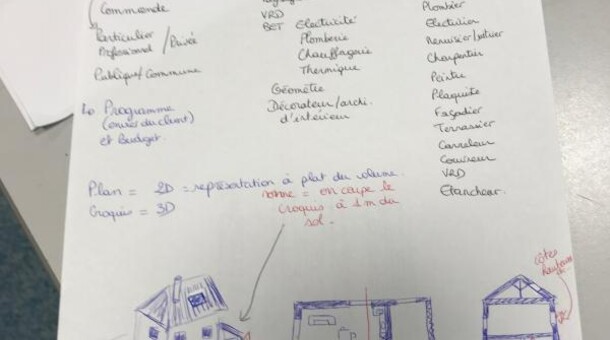 Commande
Particulier
Professionnel / Privée
Publique / Commune
Programme
(envies du client)
et budget.
VRD
BET Electricité
Plomberie
Chaufferie
Thermique
Géomètre
Décorateur/archi.
d'intérieur
Plombier
Electricien
Menuisier/
Charpentier
Peintre
Plaquiste
Façadier
Terrassier
Carreleur
Couvreur
VRD
Etancheur.
Plan = 2D = représentation à plat du volume.
Croquis = 3D
= on coupe le
croquis à 1m du
sol.
côtes